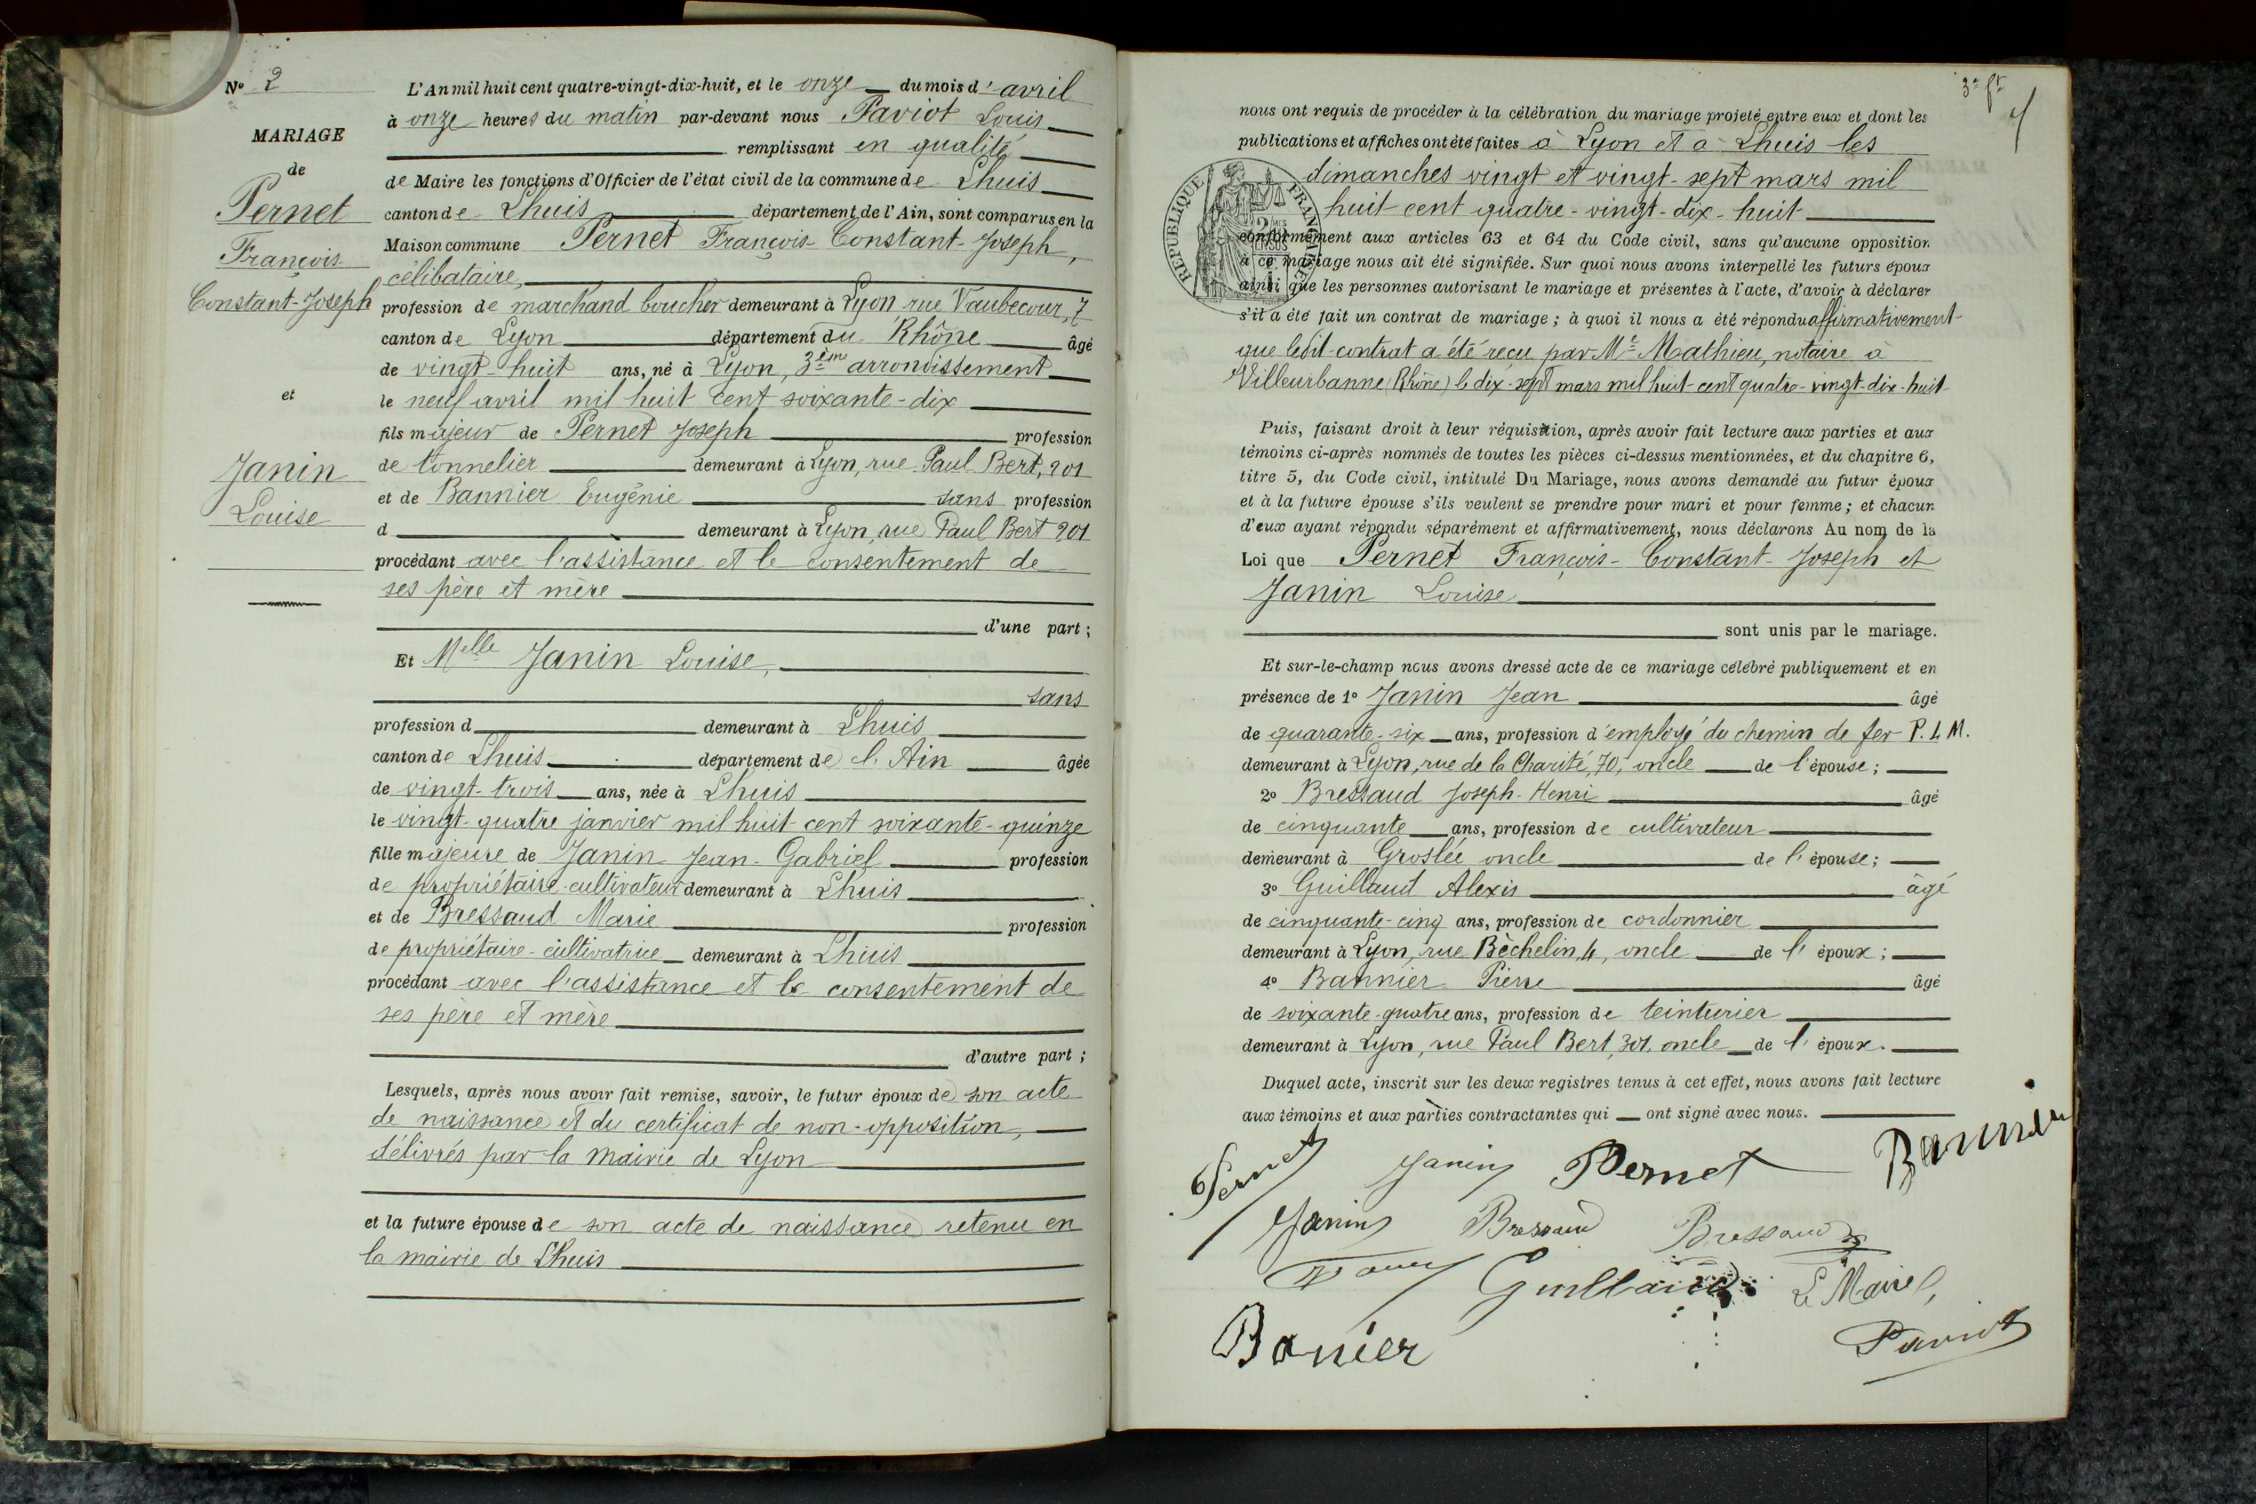 N° 2
MARIAGE
de
Pernet
François
Constant-Joseph
et
Janin
Louise
L'An mil huit cent quatre-vingt-dix-huit, et le onze du mois d'avril
à onze heures du matin par-devant nous Paviot Louis
remplissant en qualité
de Maire les fonctions d'Officier de l'état civil de la commune de Lhuis
canton de Lhuis département de l'Ain, sont comparus en la
Maison commune Pernet François-Constant-Joseph,
célibataire,
profession de marchand boucher demeurant à Lyon rue Vaubecour, 7
canton de Lyon département du Rhône âgé
de vingt-huit ans, né à Lyon, 3ème arrondissement
le neuf avril mil huit cent soixante-dix
fils majeur de Pernet Joseph profession
de tonnelier demeurant à Lyon, rue Paul Bert, 201
et de Bannier Eugénie sans profession
d demeurant à Lyon, rue Paul Bert 201
procédant avec l'assistance et le consentement de
ses père et mère
d'une part;
Et Melle Janin Louise,
sans
profession d demeurant à Lhuis
canton de Lhuis département de l'Ain âgée
de vingt-trois ans, née à Lhuis
le vingt-quatre janvier mil huit cent soixante-quinze
fille majeure de Janin Jean-Gabriel profession
de propriétaire-cultivateur demeurant à Lhuis
et de Bressaud Marie profession
de propriétaire-cultivatrice demeurant à Lhuis
procédant avec l'assistance et le consentement de
ses père et mère
d'autre part;
Lesquels, après nous avoir fait remise, savoir, le futur époux de son acte
de naissance et du certificat de non-opposition,
délivrés par la mairie de Lyon
et la future épouse de son acte de naissance retenu en
la mairie de Lhuis
3e ft
nous ont requis de procéder à la célébration du mariage projeté entre eux et dont les
publications et affiches ont été faites à Lyon et à Lhuis les
dimanches vingt et vingt-sept mars mil
huit cent quatre-vingt-dix-huit
RÉPUBLIQUE FRANÇAISE
conformément aux articles 63 et 64 du Code civil, sans qu'aucune opposition
à ce mariage nous ait été signifiée. Sur quoi nous avons interpellé les futurs époux
ainsi que les personnes autorisant le mariage et présentes à l'acte, d'avoir à déclarer
s'il a été fait un contrat de mariage; à quoi il nous a été répondu affirmativement
que ledit contrat a été reçu par Me Mathieu, notaire à
Villeurbanne (Rhône) le dix-sept mars mil huit-cent quatre-vingt-dix-huit
Puis, faisant droit à leur réquisition, après avoir fait lecture aux parties et aux
témoins ci-après nommés de toutes les pièces ci-dessus mentionnées, et du chapitre 6,
titre 5, du Code civil, intitulé Du Mariage, nous avons demandé au futur époux
et à la future épouse s'ils veulent se prendre pour mari et pour femme; et chacun
d'eux ayant répondu séparément et affirmativement, nous déclarons Au nom de la
Loi que Pernet François-Constant-Joseph et
Janin Louise
sont unis par le mariage.
Et sur-le-champ nous avons dressé acte de ce mariage célébré publiquement et en
présence de 1° Janin Jean âgé
de quarante-six ans, profession d'employé du chemin de fer P.L.M.
demeurant à Lyon, rue de la Charité, 70, oncle de l'épouse;
2° Bressaud Joseph-Henri âgé
de cinquante ans, profession de cultivateur
demeurant à Groslée oncle de l'épouse;
3° Guillaud Alexis âgé
de cinquante-cinq ans, profession de cordonnier
demeurant à Lyon, rue Bèchelin, 4, oncle de l'époux;
4° Bannier Pierre âgé
de soixante-quatre ans, profession de teinturier
demeurant à Lyon, rue Paul Bert, 301, oncle de l'époux.
Duquel acte, inscrit sur les deux registres tenus à cet effet, nous avons fait lecture
aux témoins et aux parties contractantes qui ont signé avec nous.
Pernet Janin Pernet Bannier
Janin Bressaud Bressaud
Guillaud Le Maire,
Banier Paviot